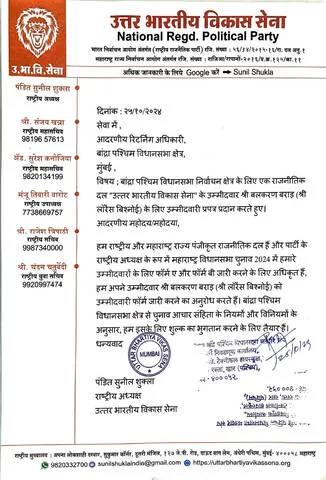 उत्तर भारतीय विकास सेना
National Regd. Political Party
उ.भा.वि.सेना
अधिक जानकारी के लिये Google करें → Sunil Shukla
पंडित सुनील शुक्ला
राष्ट्रीय अध्यक्ष
श्री. संजय खन्ना
राष्ट्रीय महासचिव
98196 57613
अ‍ॅड. सुरेश कनौजिया
राष्ट्रीय महासचिव
9820134199
मंजू तिवारी वागेट
राष्ट्रीय उपाध्यक्ष
7738669757
श्री. राजेश त्रिपाठी
राष्ट्रीय सचिव
9987340000
श्री. चंदन चतुर्वेदी
राष्ट्रीय युवा सचिव
9920997474
दिनांक : २५/१०/२०२४
सेवा में,
आदरणीय रिटर्निंग अधिकारी,
बांद्रा पश्चिम विधानसभा क्षेत्र,
मुंबई ,
विषय : बांद्रा पश्चिम विधानसभा निर्वाचन क्षेत्र के लिए एक राजनीतिक
दल "उत्तर भारतीय विकास सेना" के उम्मीदवार श्री बलकरण बराड़ (श्री
लॉरेंस बिश्नोई) के लिए उम्मीदवारी प्रपत्र प्रदान करते हुए।
आदरणीय महोदय/महोदया,
हम राष्ट्रीय और महाराष्ट्र राज्य पंजीकृत राजनीतिक दल हैं और पार्टी के
राष्ट्रीय अध्यक्ष के रूप में महाराष्ट्र विधानसभा चुनाव 2024 में हमारे
उम्मीदवारों के लिए फॉर्म ए और फॉर्म बी जारी करने के लिए अधिकृत हैं,
हम अपने उम्मीदवार श्री बलकरण बराड़ (श्री लॉरेंस बिश्नोई) को
उम्मीदवारी फॉर्म जारी करने का अनुरोध करते हैं। बांद्रा पश्चिम
विधानसभा क्षेत्र से चुनाव आचार संहिता के नियमों और विनियमों के
अनुसार, हम इसके लिए शुल्क का भुगतान करने के लिए तैयार हैं।
धन्यवाद
UTTAR BHARTIYA VIKAS SENA
MUMBAI
पंडित सुनील शुक्ला
राष्ट्रीय अध्यक्ष
उत्तर भारतीय विकास सेना
9820332700 sunilshuklaindia@gmail.com https://uttarbhartiyavikassong.org